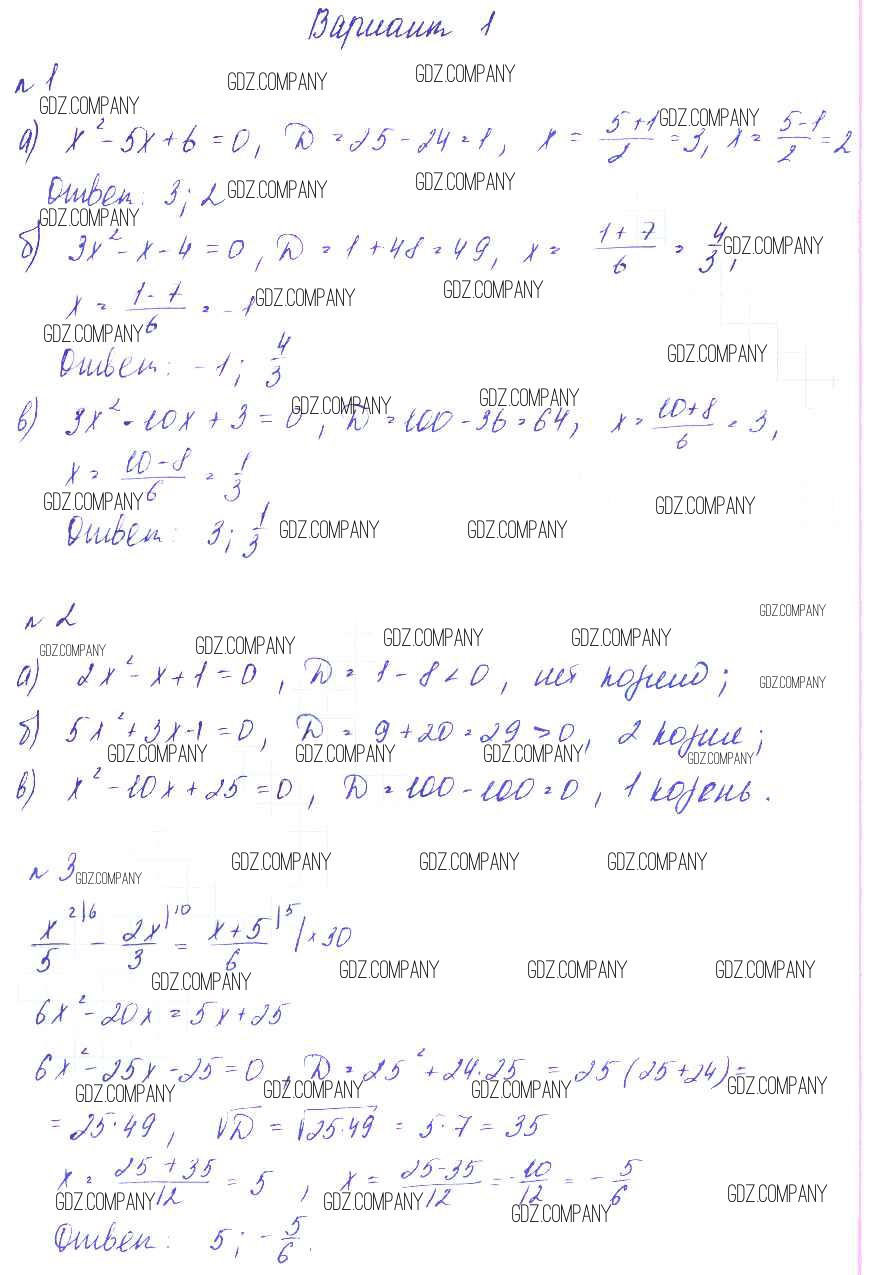 Вариант 1
n 1
GDZ.COMPANY GDZ.COMPANY GDZ.COMPANY GDZ.COMPANY
а) x² - 5x + 6 = 0, D = 25 - 24 = 1, x = (5+1)/2 = 3, x = (5-1)/2 = 2
Ответ: 3; 2 GDZ.COMPANY GDZ.COMPANY
GDZ.COMPANY GDZ.COMPANY
б) 3x² - x - 4 = 0, D = 1 + 48 = 49, x = (1+7)/6 = 4/3,
x = (1-7)/6 = -1 GDZ.COMPANY GDZ.COMPANY
GDZ.COMPANY GDZ.COMPANY
Ответ: -1; 4/3
GDZ.COMPANY GDZ.COMPANY
в) 3x² - 10x + 3 = 0, D = 100 - 36 = 64, x = (10+8)/6 = 3,
x = (10-8)/6 = 1/3
GDZ.COMPANY GDZ.COMPANY
Ответ: 3; 1/3 GDZ.COMPANY GDZ.COMPANY
n 2 GDZ.COMPANY
GDZ.COMPANY GDZ.COMPANY GDZ.COMPANY GDZ.COMPANY
а) 2x² - x + 1 = 0, D = 1 - 8 < 0, нет корней; GDZ.COMPANY
б) 5x² + 3x - 1 = 0, D = 9 + 20 = 29 > 0, 2 корня;
GDZ.COMPANY GDZ.COMPANY GDZ.COMPANY GDZ.COMPANY
в) x² - 10x + 25 = 0, D = 100 - 100 = 0, 1 корень.
n 3 GDZ.COMPANY GDZ.COMPANY GDZ.COMPANY GDZ.COMPANY
x²/5 |6 - 2x/3 |10 = (x+5)/6 |5 | × 30
GDZ.COMPANY GDZ.COMPANY GDZ.COMPANY GDZ.COMPANY
6x² - 20x = 5x + 25
6x² - 25x - 25 = 0, D = 25² + 24·25 = 25(25+24) =
GDZ.COMPANY GDZ.COMPANY GDZ.COMPANY GDZ.COMPANY
= 25·49, √D = √25·49 = 5·7 = 35
x = (25+35)/12 = 5, x = (25-35)/12 = -10/12 = -5/6
GDZ.COMPANY GDZ.COMPANY GDZ.COMPANY GDZ.COMPANY
Ответ: 5; -5/6.